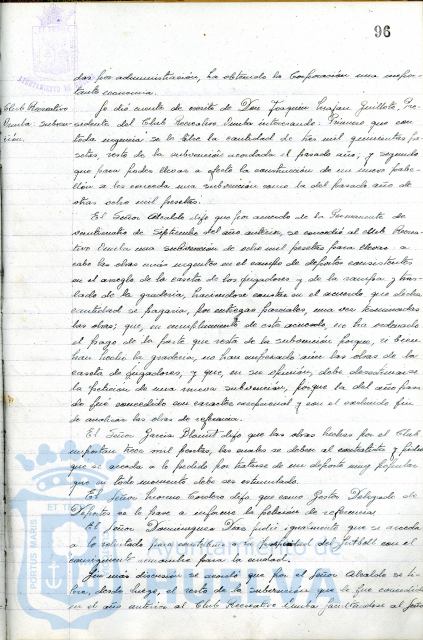 96
das por administración, ha obtenido la Corporación una impor-
tante economía.
Club Recreativo
Huelva: subven-
ción.
Se dió cuenta de escrito de Don Joaquín Guillote, Pre-
sidente del Club Recreativo Huelva interesando: Primero que con
toda urgencia se le libre la cantidad de tres mil quinientas pe-
setas resto de la subvención acordada el pasado año, y segundo
que para poder llevar a efecto la construcción de un nuevo pabe-
llón se les conceda una subvención como la del pasado año de
otras ocho mil pesetas.
El Señor Alcalde dijo que por acuerdo de la Permanente de
veinticuatro de Septiembre del año anterior, se concedió al Club Recrea-
tivo Huelva una subvención de ocho mil pesetas para llevar a
cabo las obras más urgentes en el campo de deportes consistentes
en el arreglo de la caseta de los jugadores y de la rampa y tras-
lado de la gradería, haciéndose constar en el acuerdo que dicha
cantidad se pagaría, por entregas parciales, una vez terminadas
las obras; que, en cumplimiento de este acuerdo, no ha ordenado
el pago de la parte que resta de la subvención porque, si bien
han hecho la gradería, no han empezado aún las obras de la
caseta de jugadores, y que, en su opinión, debe desestimarse
la petición de una nueva subvención, porque la del año pasa-
do fué concedida con carácter excepcional y con el exclusivo fin
de realizar las obras de referencia.
El Señor García dijo que las obras hechas por el Club
importan trece mil pesetas, las cuales se deben al contratista y pide
que se acceda a lo pedido por tratarse de un deporte muy popular
que en todo momento debe ser estimulado.
El Señor Moreno Cordero dijo que como Gestor Delegado de
Deportes se le pase a informe la petición de referencia.
El Señor Domínguez Díaz pidió igualmente que se acceda
a lo solicitado para contribuir a la prosperidad del football con el
consiguiente beneficio para la ciudad.
Sin más discusión se acordó que por el Señor Alcalde se li-
bre, desde luego, el resto de la subvención que le fué concedida
en el año anterior al Club Recreativo Huelva facultándose al Señor
PORTUS MARIS
ET TE
Ayuntamiento de
HUELVA